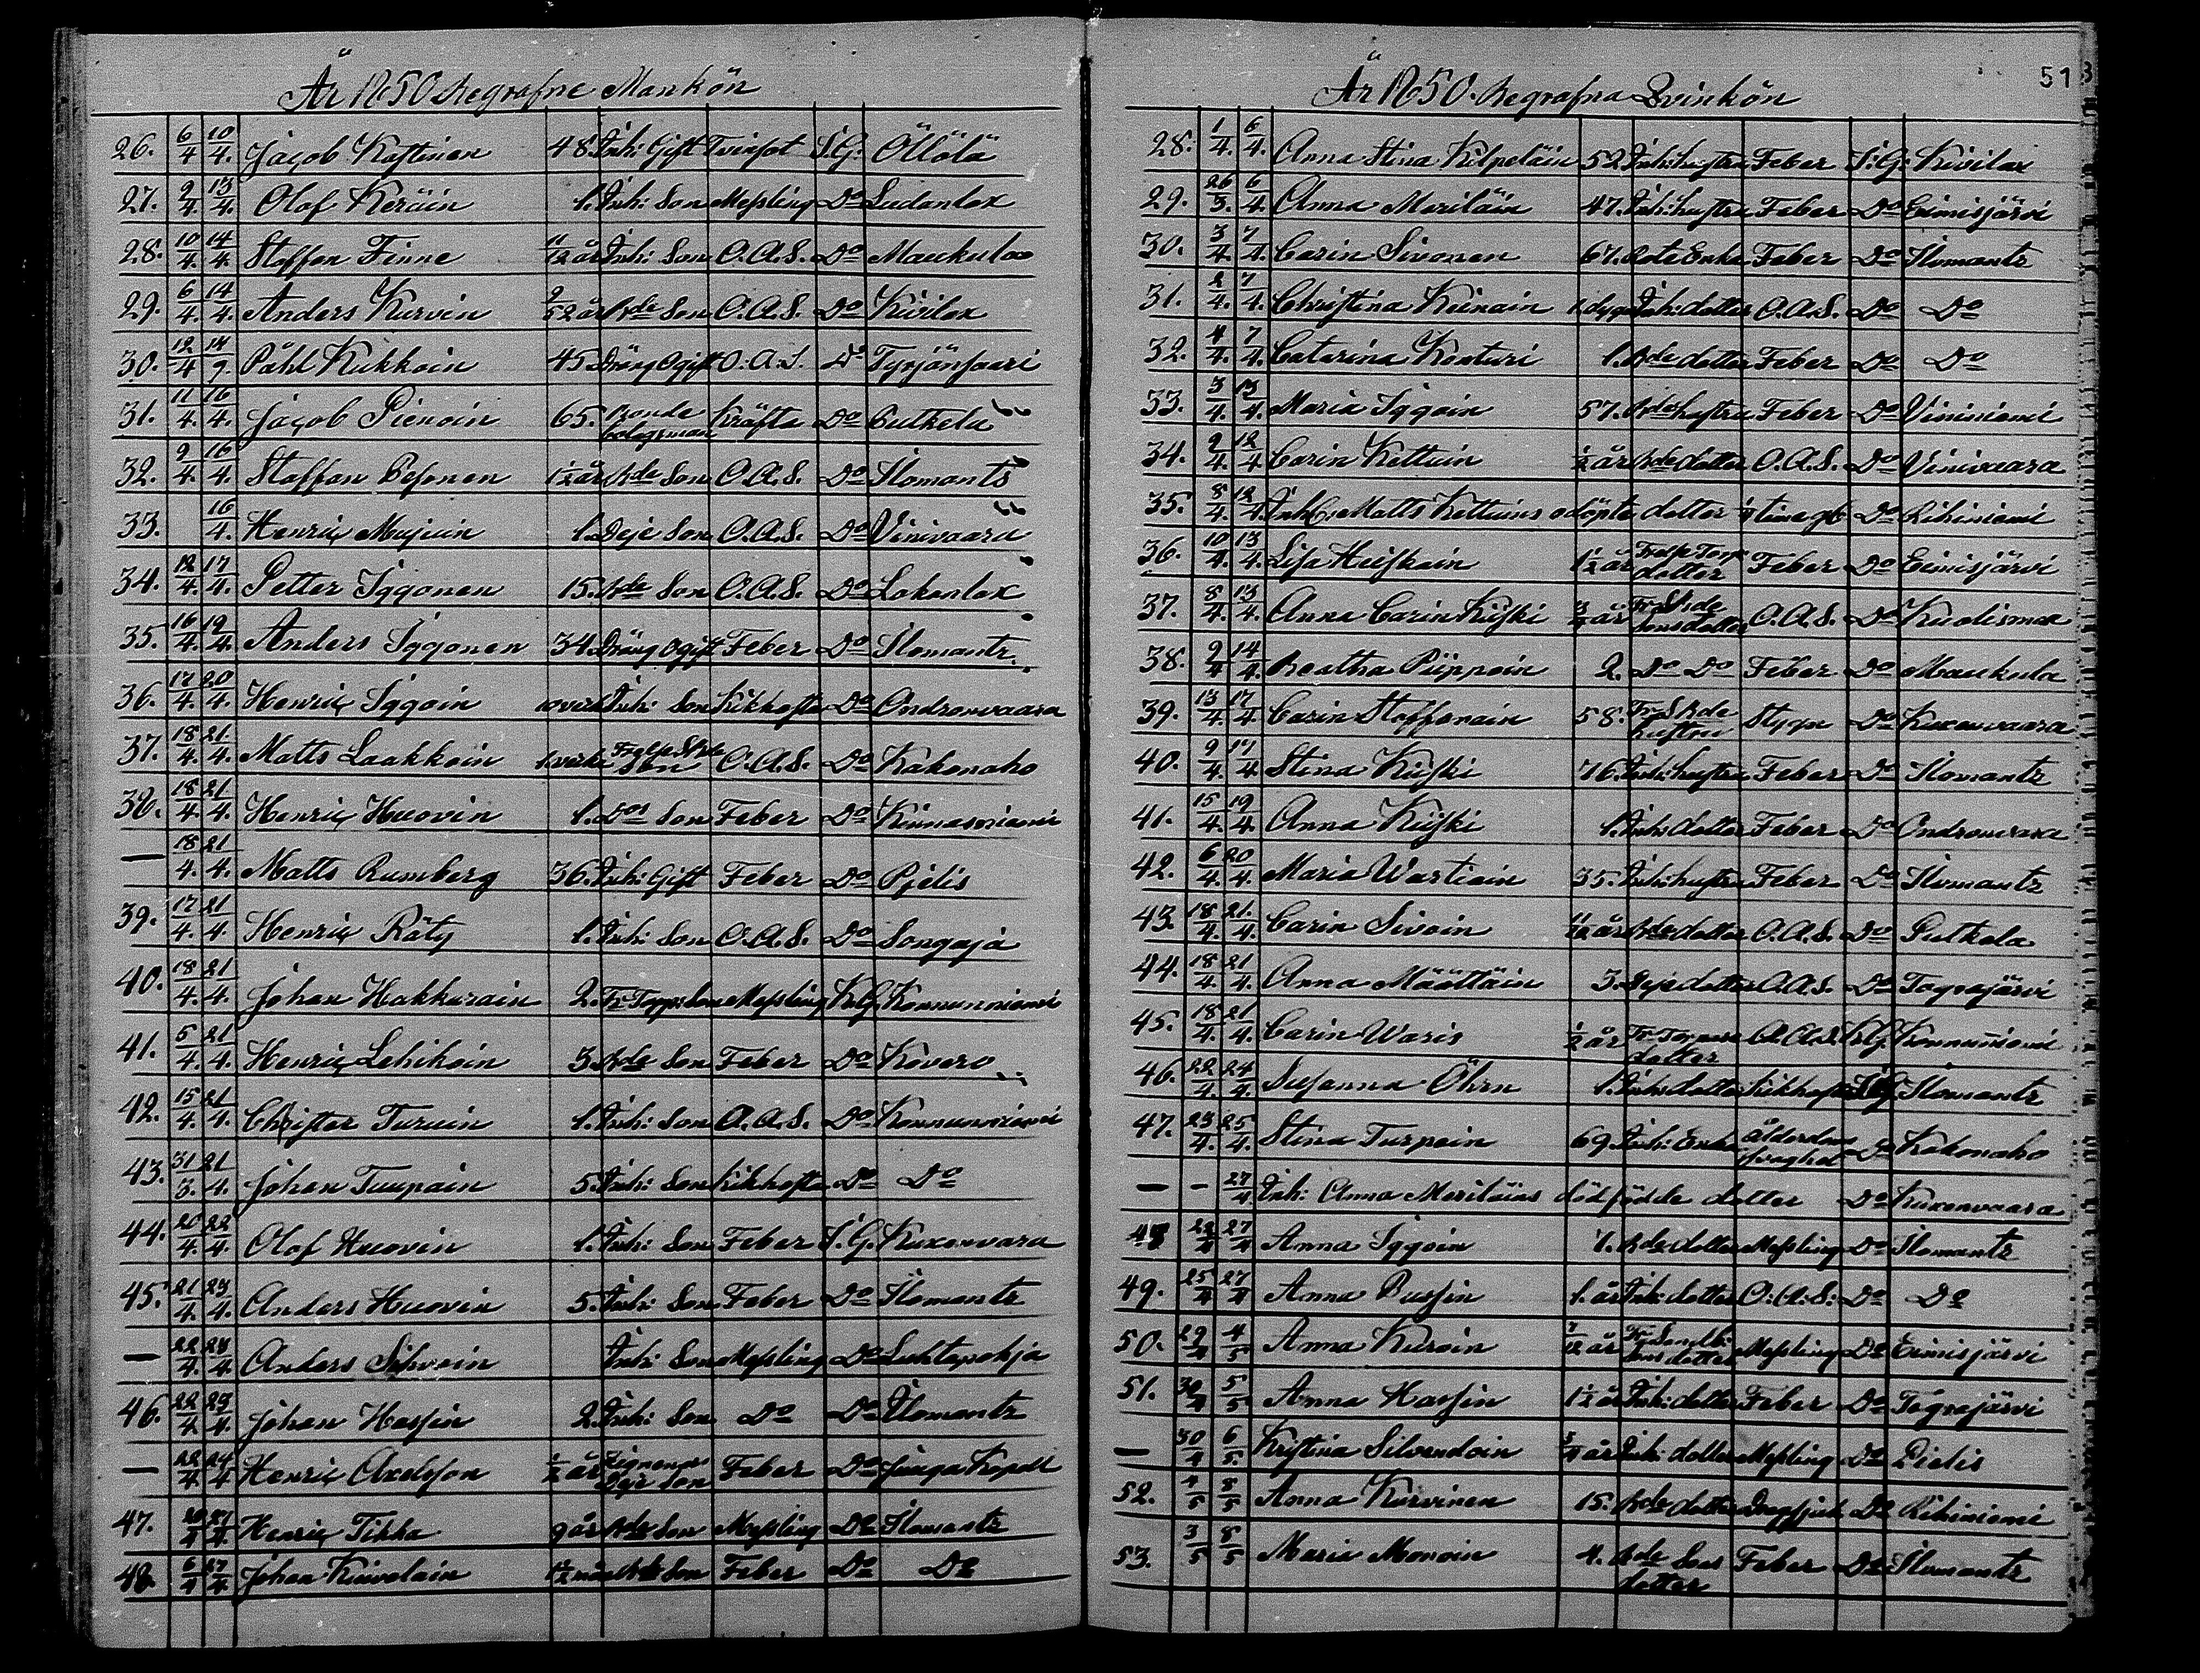 51
År 1850 Begrafne Mankön
26. 6/4 10/4. Jacob Kastinen 48. Inh: Gift Tvinsot S.G. Öllölä
27. 9/4. 13/4. Olof Keräin 1. Inh: Son Messling Do
28. 10/4. 14/4. Staffan Finne 11/12 år Inh: Son O.A.S. Do Maukula
29. 6/4. 14/4. Anders Kurvin 9/52 år Bde Son O.A.S. Do Kivilax
30. 12/4 14/9. Påhl Kukkoin 45 Dräng Ogift O.A.S. Do Tyrjänsaari
31. 11/4. 16/4. Jacob Pienoin 65. Bonde bolagsman Kräfta Do Putkela
32. 9/4. 16/4. Staffan Pesonen 1 1/2 år Bde Son O.A.S. Do Ilomants
33. 16/4. Henric Mujuin 1. Deje Son O.A.S. Do Vinivaara
34. 12/4 17/4. Petter Iggonen 15. Bde Son O.A.S. Do Lokanlax
35. 16/4. 19/4. Anders Iggonen 34. Dräng Ogift Feber Do Ilomantz.
36. 17/4. 20/4. Henric Iggoin Inh: Son Kikhosta Do Ondronvaara
37. 18/4. 21/4. Matts Laakkoin Son O.A.S. Do Kakonaho
38. 18/4. 21/4. Henric Huovin 1. Son Feber Do Kinnasniemi
— 18/4. 21/4. Matts Rumberg 36. Inh: Gift Feber Do Pjelis
39. 17/4. 21/4. Henric Räty 1. Inh: Son O.A.S. Do Songaja
40. 18/4. 21/4. Johan Hakkarain 2. Messling K.G. Konnunniemi
41. 5/4 21/4. Henric Lehikoin 3. Bde Son Feber Do Kovero
42. 15/4. 21/4. Christer Turuin 1. Inh: Son O.A.S. Do Konnunniemi
43. 31/3. 21/4. Johan Tuupain 5. Inh: Son Kikhosta Do Do
44. 20/4. 22/4. Olof Huovin 1. Inh: Son Feber S.G. Kuxenvara
45. 21/4. 23/4. Anders Huovin 5. Inh: Son Feber Do Ilomantz
— 22/4 23/4 Anders Sihvoin Inh: Son Messling Do Luhtapohja
46. 22/4. 23/4. Johan Hassin 2. Inh: Son Do Do Ilomantz
— 22/4. 24/4 Henric Axelsson 1/2 år Son Feber Do
47. 27/4. Henric Tikka 9 år Bde Son Messling Do Ilomantz
48. 6/4 27/4. Johan Kinnalain Bde Son Feber Do Do
År 1850. Begrafna Qvinkön
28. 1/4. 6/4. Anna Stina Kilpeläin 52. Inh: hustru Feber S.G. Kivilax
29. 26/3. 6/4 Anna Meriläin 47. Inh: hustru Feber Do Eimisjärvi
30. 3/4. 7/4. Carin Sivonen 67. Bde Enka Feber Do Ilomantz
31. 2/4. 7/4. Christina Keinain Inh: dotter O.A.S. Do Do
32. 4/4. 7/4. Catarina Konturi 1. Bde dotter Feber Do Do
33. 3/4. 13/4. Maria Iggoin 57. Bde hustru Feber Do Vininiemi
34. 9/4. 12/4 Carin Kettuin 1/2 år Bde dotter O.A.S. Do Vinivaara
35. 8/4. 12/4. Inh: Matts Kettuins odöpta dotter Do Rihiniemi
36. 10/4. 13/4. Lisa Huiskain 1 1/2 år dotter Feber Do Eimisjärvi
37. 8/4 13/4. Anna Carin Kuiski 3/4 år Sonsdotter O.A.S. Do Kuolismaa
38. 9/4 14/4. Beatha Piippoin 2. Do Do Feber Do Maukula
39. 13/4. 17/4. Carin Staffanain 58. hustru Do Kuxenvaara
40. 9/4. 17/4 Stina Kuiski 76. Inh: hustru Feber Do Ilomantz
41. 15/4. 19/4. Anna Kuiski 1. Inh: dotter Feber Do Ondronvara
42. 6/4. 20/4. Maria Wartiain 35. Inh: hustru Feber Do Ilomantz
43. 18/4. 21/4. Carin Sivoin 11/12 år Bde dotter O.A.S. Do Putkela
44. 18/4. 21/4. Anna Määttäin 3. Deje dotter O.A.S. Do
45. 18/4. 21/4. Carin Waris 1/2 år dotter O.A.S. K.G. Konnuniemi
46. 22/4. 24/4. Susanna Öhrn 1. Inh: dotter Kikhosta S.G. Ilomantz
47. 23/4. 25/4. Stina Turpain 69. Inh: Enka Ålderdoms svaghet Do Kakonaho
— – 27/4 Inh: Anna Meriläins dödfödde dotter Do Kuxenvaara
48 27/4 Anna Iggoin 7. Bde dotter Messling Do Ilomantz
49. 25/4 27/4 Anna Pussin 1. år Inh: dotter O.A.S. Do Do
50. 29/4 4/5 Anna Kuroin dotter Messling Do Eimisjärvi
51. 30/4 5/5 Anna Hassin 1 1/2 år Inh: dotter Feber Do
— 30/4 6/5. Kristina Silvendoin 3/4 år Inh: dotter Messling Do Pielis
52. 4/5 8/5 Anna Kurvinen 15. Bde dotter Do Rihiniemi
53. 3/5 8/5 Maria Monoin 4. Bde Sons dotter Feber Do Ilomantz